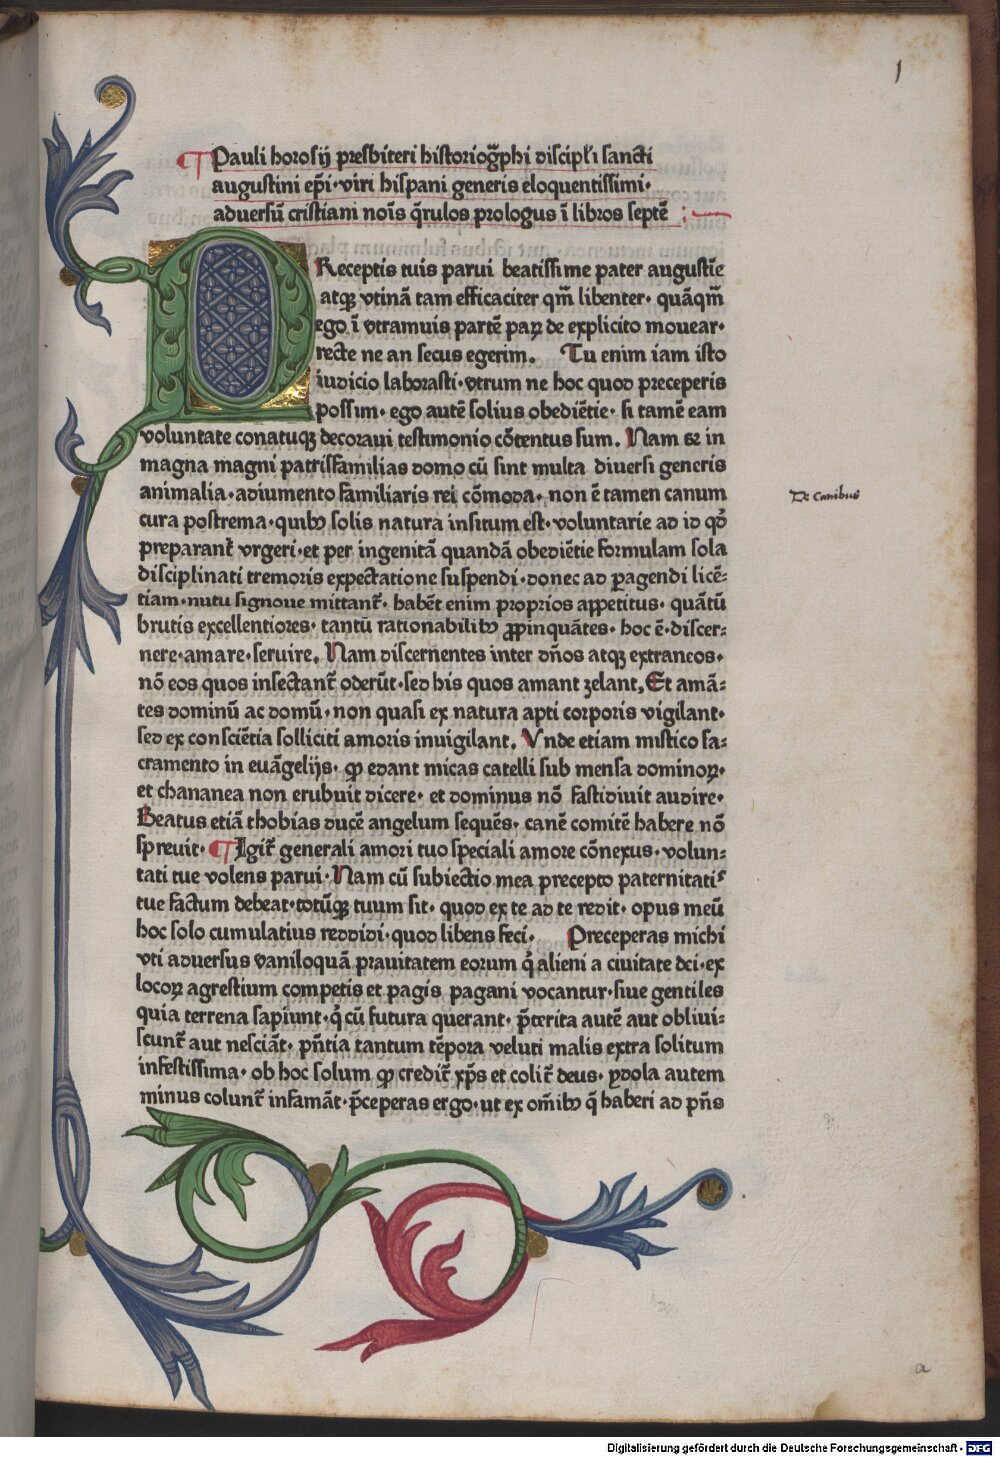 1
Pauli horosij presbiteri historiog̃phi discipl'i sancti
augustini ep̄i · viri hispani generis eloquentissimi ·
aduersū cristiani nois̄ q̄rulos prologus ī libros septē
PReceptis tuis parui beatissime pater augustīe
atqꝫ vtinā tam efficaciter qm̄ libenter · quāqm̄
ego ī vtramuis partē paꝝ de explicito mouear ·
recte ne an secus egerim . Tu enim iam isto
iudicio laborasti · vtrum ne hoc quod preceperis
possim · ego autē solius obediētie · si tamē eam
voluntate conatuqꝫ decoraui testimonio cōtentus sum . Nam et in
magna magni patrisfamilias domo cū sint multa diuersi generis
animalia · adiumento familiaris rei cōmoda · non ē tamen canum
cura postrema · quibꝫ solis natura insitum est · voluntarie ad id qd̕
preparant᷑ vrgeri · et per ingenitā quandā obediētie formulam sola
disciplinati tremoris expectatione suspendi · donec ad ꝑagendi licē⸗
tiam · nutu signoue mittant᷑ · habēt enim proprios appetitus · quātū
brutis excellentiores · tantū rationabilibꝫ ꝓpinquātes · hoc ē · discer⸗
nere · amare · seruire . Nam discernentes inter dn̄os atqꝫ extraneos ·
nō eos quos insectant᷑ oderūt · sed his quos amant zelant . Et amā⸗
tes dominū ac domū · non quasi ex natura apti corporis vigilant ·
sed ex consciētia solliciti amoris inuigilant . Vnde etiam mistico sa⸗
cramento in euāgelijs · ꝙ edant micas catelli sub mensa dominoꝝ ·
et chananea non erubuit dicere · et dominus nō fastidiuit audire ·
Beatus etiā thobias ducē angelum sequēs · canē comitē habere nō
spreuit · ¶ Igit᷑ generali amori tuo speciali amore cōnexus · volun⸗
tati tue volens parui · Nam cū subiectio mea precepto paternitatis
tue factum debeat · totūqꝫ tuum sit · quod ex te ad te redit · opus meū
hoc solo cumulatius reddidi · quod libens feci · Preceperas michi
vti aduersus vaniloquā prauitatem eorum q̇ alieni a ciuitate dei · ex
locoꝝ agrestium competis et pagis pagani vocantur · siue gentiles
quia terrena sapiunt · q̇ cū futura querant · p̄terita autē aut obliui⸗
scunt᷑ aut nesciāt · pn̄tia tantum tēpora veluti malis extra solitum
infestissima · ob hoc solum ꝙ credit᷑ xp̄s et colit᷑ deus · ydola autem
minus colunt᷑ infamāt · p̄ceperas ergo · ut ex om̄ibꝫ q̄ haberi ad pn̄s
De Canibus
a
Digitalisierung gefördert durch die Deutsche Forschungsgemeinschaft - DFG